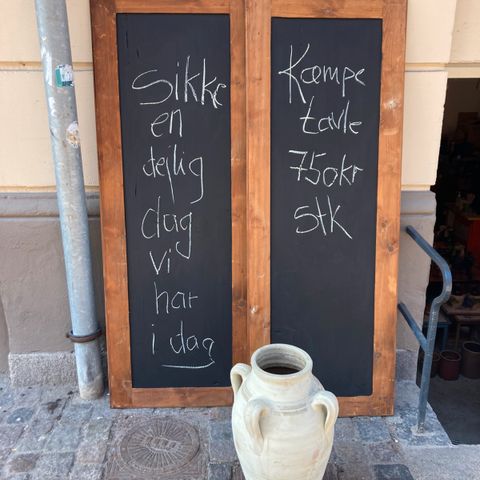 Sikke
en
dejlig
dag
vi
har
i dag
Kæmpe
tavle
750kr
stk